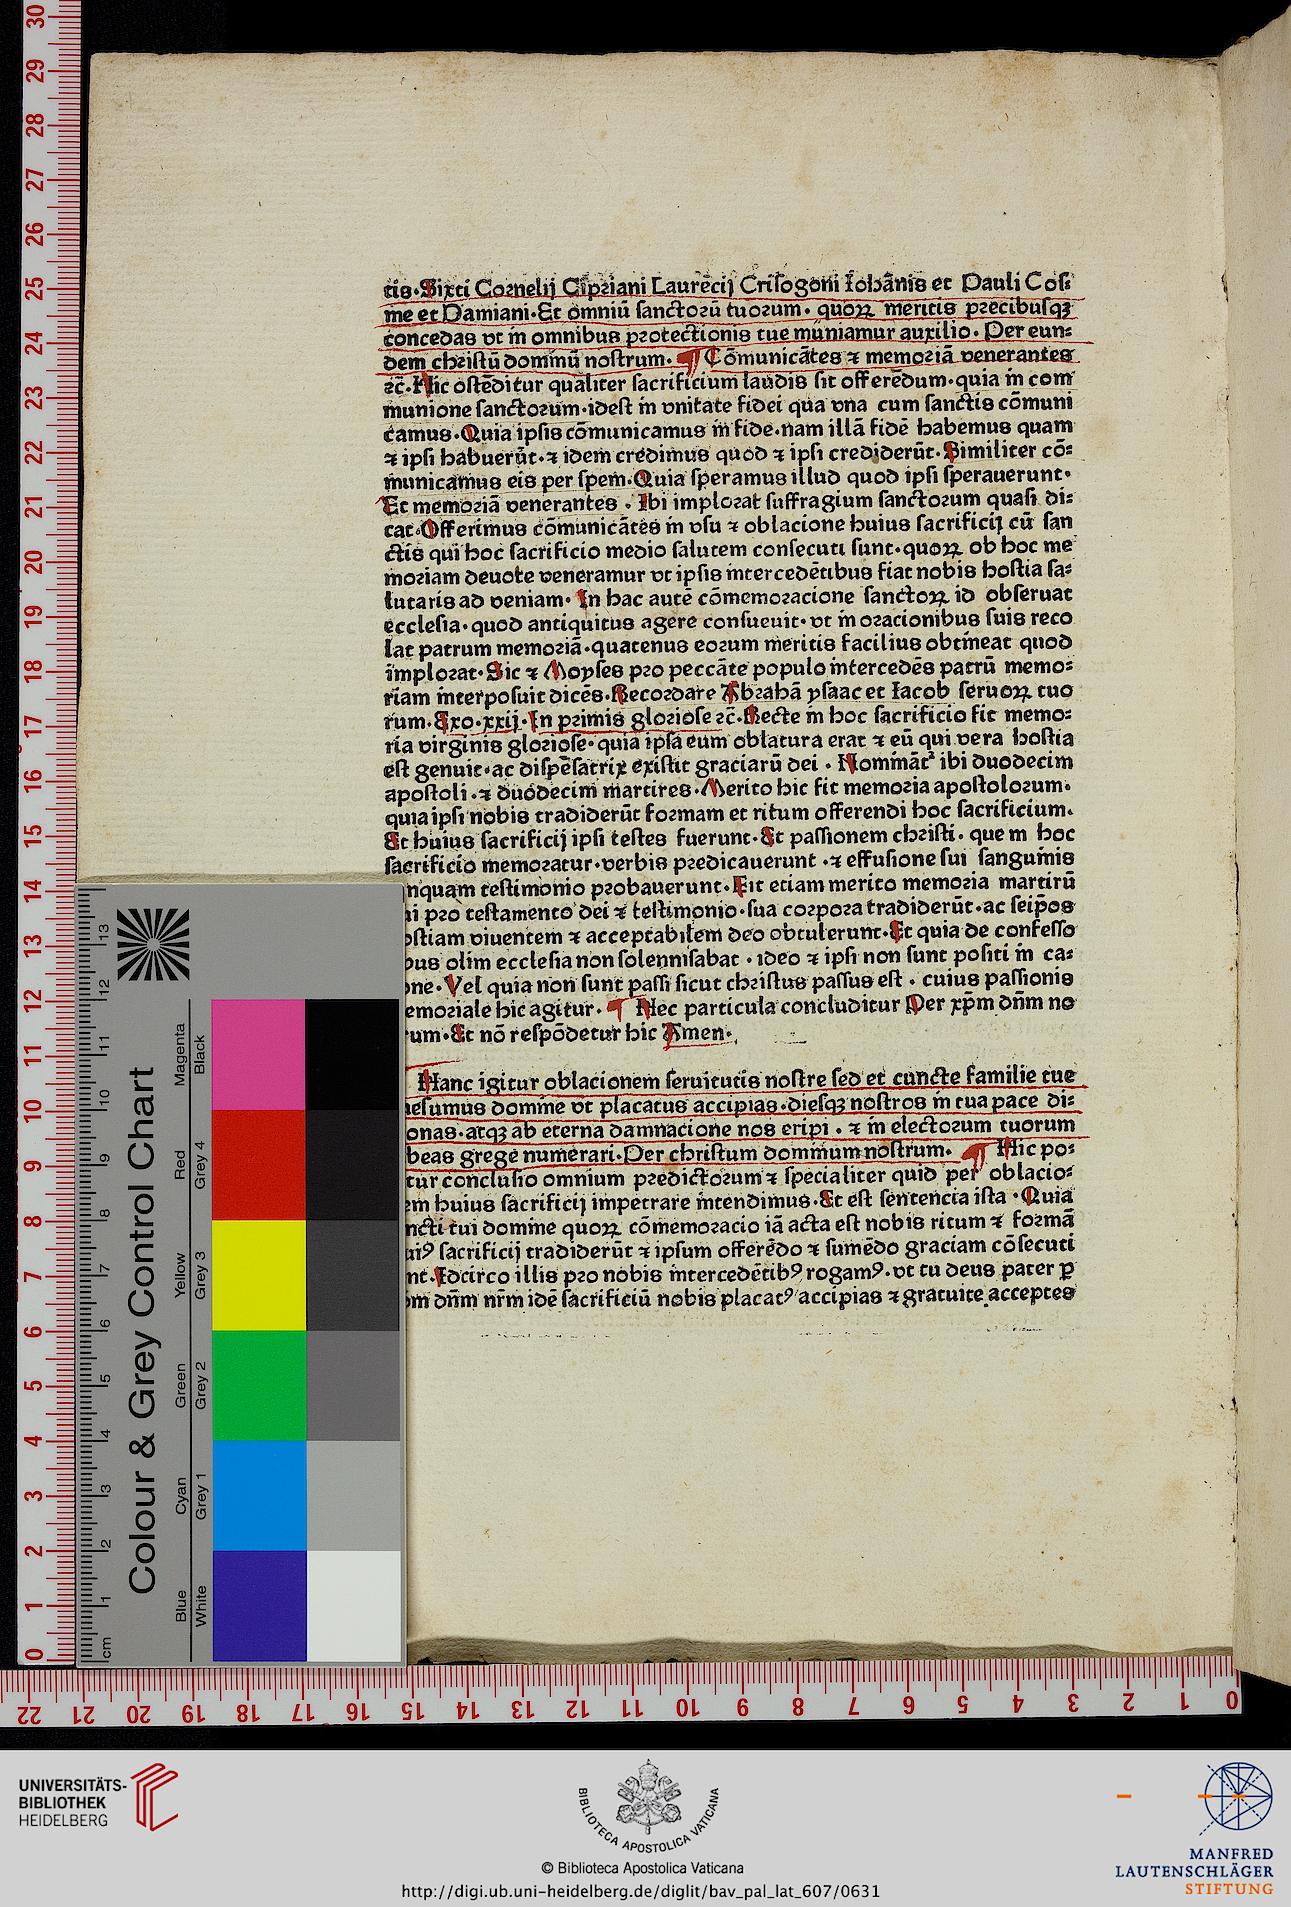 tis·Sixti Cornelij Cipriani Laurẽcij Crisogoni Iohãnis et Pauli Cos⸗
me et Damiani·Et omniũ sanctorũ tuorum· quoꝝ meritis precibusqꝫ
concedas vt in omnibus protectionis tue muniamur auxilio· Per eun⸗
dem christũ dominũ nostrum· ¶ Cõmunicãtes ⁊ memoriã venerantes
⁊c̃·Hic ostẽditur qualiter sacrificium laudis sit offerẽdum·quia in com
munione sanctorum·idest in vnitate fidei qua vna cum sanctis cõmuni
camus·Quia ipsis cõmunicamus in fide·nam illã fidẽ habemus quam
⁊ ipsi habuerũt·⁊ idem credimus quod ⁊ ipsi crediderũt·Similiter cõ⸗
municamus eis per spem·Quia speramus illud quod ipsi sperauerunt·
Et memoriã venerantes · Ibi implorat suffragium sanctorum quasi di⸗
cat·Offerimus cõmunicãtes in vsu ⁊ oblacione huius sacrificij cũ san
ctis qui hoc sacrificio medio salutem consecuti sunt·quoꝝ ob hoc me
moriam deuote veneramur vt ipsis intercedẽtibus fiat nobis hostia sa⸗
lutaris ad veniam· In hac autẽ cõmemoracione sanctoꝝ id obseruat
ecclesia·quod antiquitus agere consueuit·vt in oracionibus suis reco
lat patrum memoriã·quatenus eorum meritis facilius obtineat quod
implorat·Sic ⁊ Moyses pro peccãte populo intercedẽs patrũ memo⸗
riam interposuit dicẽs·Recordare Abrahã ysaac et Iacob seruoꝝ tuo
rum·Exo·xxij·In primis gloriose ⁊c̃·Recte in hoc sacrificio fit memo⸗
ria virginis gloriose·quia ipsa eum oblatura erat ⁊ eũ qui vera hostia
est genuit·ac dispẽsatrix existit graciarũ dei · Nominãt᷑ ibi duodecim
apostoli·⁊ duodecim martires·Merito hic fit memoria apostolorum·
quia ipsi nobis tradiderũt formam et ritum offerendi hoc sacrificium·
Et huius sacrificij ipsi testes fuerunt·Et passionem christi·que in hoc
sacrificio memoratur·verbis predicauerunt ·⁊ effusione sui sanguinis
nquam testimonio probauerunt·Fit etiam merito memoria martirũ
i pro testamento dei ⁊ testimonio·sua corpora tradiderũt·ac seip̃os
ostiam viuentem ⁊ acceptabilem deo obtulerunt·Et quia de confesso
bus olim ecclesia non solennisabat ·ideo ⁊ ipsi non sunt positi in ca⸗
one·Vel quia non sunt passi sicut christus passus est · cuius passionis
emoriale hic agitur· ¶ Hec particula concluditur Per xp̃m dñm no
rum·Et nõ respõdetur hic Amen·
Hanc igitur oblacionem seruitutis nostre sed et cuncte familie tue
esumus domine vt placatus accipias·diesqꝫ nostros in tua pace di⸗
onas·atqꝫ ab eterna damnacione nos eripi · ⁊ in electorum tuorum
beas grege numerari·Per christum dominum nostrum· ¶ Hic po⸗
tur conclusio omnium predictorum ⁊ specialiter quid per oblacio⸗
em huius sacrificij impetrare intendimus·Et est sentencia ista ·Quia
ncti tui domine quoꝝ cõmemoracio iã acta est nobis ritum ⁊ formã
uiꝰ sacrificij tradiderũt ⁊ ipsum offerẽdo ⁊ sumẽdo graciam cõsecuti
nt·Idcirco illis pro nobis intercedẽtibꝰ rogamꝰ·vt tu deus pater ꝑ
m dñm nr̃m idẽ sacrificiũ nobis placatꝰ accipias ⁊ gratuite acceptes
Colour & Grey Control Chart
Blue Cyan Green Yellow Red Magenta
White Grey 1 Grey 2 Grey 3 Grey 4 Black
cm 1 2 3 4 5 6 7 8 9 10 11 12 13
30 29 28 27 26 25 24 23 22 21 20 19 18 17 16 15 14 13 12 11 10 9 8 7 6 5 4 3 2 1 0
22 21 20 19 18 17 16 15 14 13 12 11 10 9 8 7 6 5 4 3 2 1 0
UNIVERSITÄTS-
BIBLIOTHEK
HEIDELBERG
BIBLIOTECA APOSTOLICA VATICANA
© Biblioteca Apostolica Vaticana
http://digi.ub.uni-heidelberg.de/diglit/bav_pal_lat_607/0631
MANFRED
LAUTENSCHLÄGER
STIFTUNG